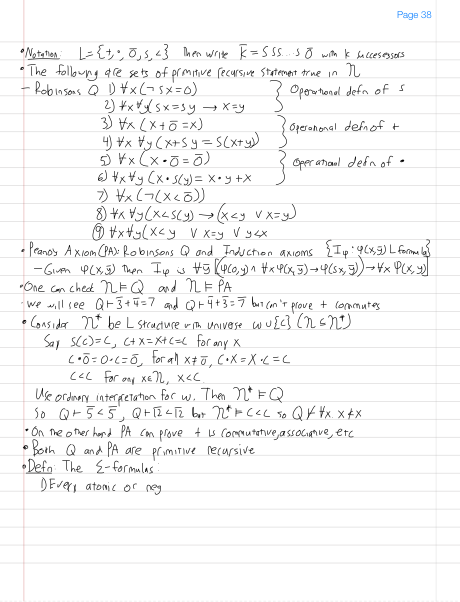 Page 38
• Notation: L={+,·,0̅,s,<} Then write k̅ = SSS...S 0̅ with k successors
• The following are sets of primitive recursive statement true in 𝒩
– Robinsons Q 1) ∀x(¬ sx=0) } Operational defn of s
2) ∀x∀y(sx=sy → x=y
3) ∀x (x+0̅=x) } Operational defn of +
4) ∀x ∀y(x+sy = s(x+y)
5) ∀x (x·0̅=0̅) } Operational defn of ·
6) ∀x∀y(x·s(y)=x·y+x
7) ∀x(¬(x<0̅))
8) ∀x ∀y(x<s(y) → (x<y ∨ x=y)
9) ∀x∀y(x<y ∨ x=y ∨ y<x
• Peano's Axiom (PA): Robinsons Q and Induction axioms {I_φ : φ(x,y̅) L formula}
– Given φ(x,y̅) Then I_φ is ∀y̅[(φ(0,y) ∧ ∀x φ(x,y̅)→φ(sx,y̅))→∀x φ(x,y̅)]
• One can check 𝒩⊨Q and 𝒩⊨PA
• We will see Q⊢3̅+4̅=7̅ and Q⊢4̅+3̅=7̅ but can't prove + commutes
• Consider 𝒩* be L structure with universe ω∪{c} (𝒩⊆𝒩*)
Say s(c)=c, c+x=x+c=c for any x
c·0̅=0·c=0̅, for all x≠0̅, c·x=x·c=c
c<c for any x∈𝒩, x<c.
Use ordinary interpretation for ω. Then 𝒩*⊨Q
So Q⊢5̅≮5̅, Q⊢1̅2̅≮1̅2̅ but 𝒩*⊨c<c so Q⊬∀x. x≮x
• On the other hand PA can prove + is commutative, associative, etc
• Both Q and PA are primitive recursive
• Defn: The Σ-formulas:
1) Every atomic or neg